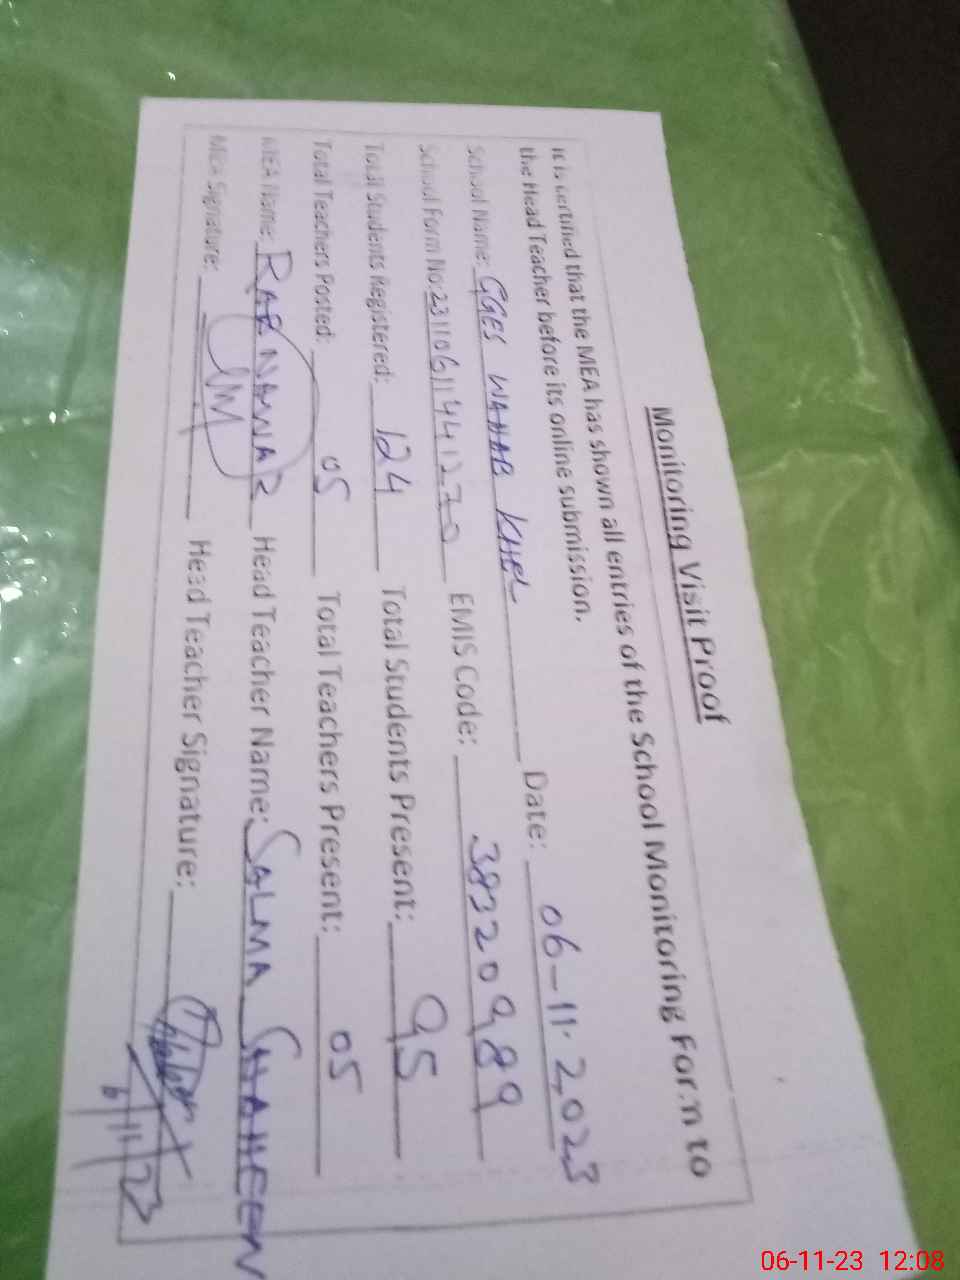 Monitoring Visit Proof
It is certified that the MEA has shown all entries of the School Monitoring Form to
the Head Teacher before its online submission.
School Name: GGES WAHAB KHEL Date: 06-11-2023
School Form No: 23110611441270 EMIS Code: 38320989
Total Students Registered: 124 Total Students Present: 95
Total Teachers Posted: 05 Total Teachers Present: 05
MEA Name: RAB NAWAR Head Teacher Name: SALMA SHAHEEN
MEA Signature: Head Teacher Signature:
6/11/23
06-11-23 12:08